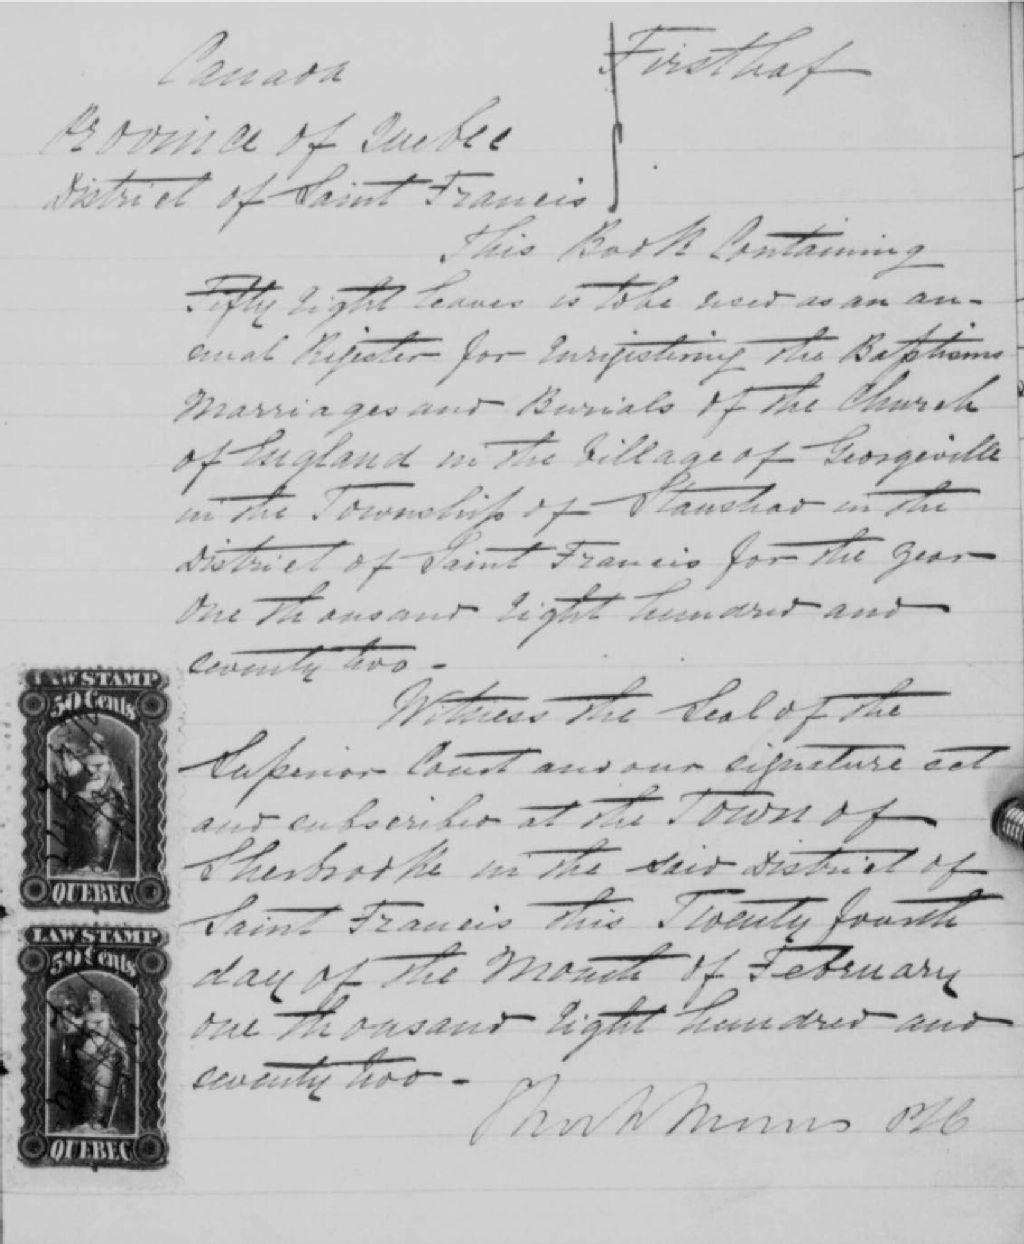 Canada
First leaf
Province of Quebec
District of Saint Francis
This Book Containing
Fifty eight leaves is to be used as an an-
nual Register for Enregistering the Baptisms
Marriages and Burials of the Church
of England in the Village of Georgeville
in the Township of Stanstead in the
District of Saint Francis for the year
One thousand Eight hundred and
seventy two -
Witness the Seal of the
Superior Court and our signature set
and subscribed at the Town of
Sherbrooke in the said District of
Saint Francis this Twenty fourth
day of the Month of February
one thousand Eight hundred and
seventy two -
Morris
LAW STAMP
50 Cents
QUEBEC
LAW STAMP
50 Cents
QUEBEC